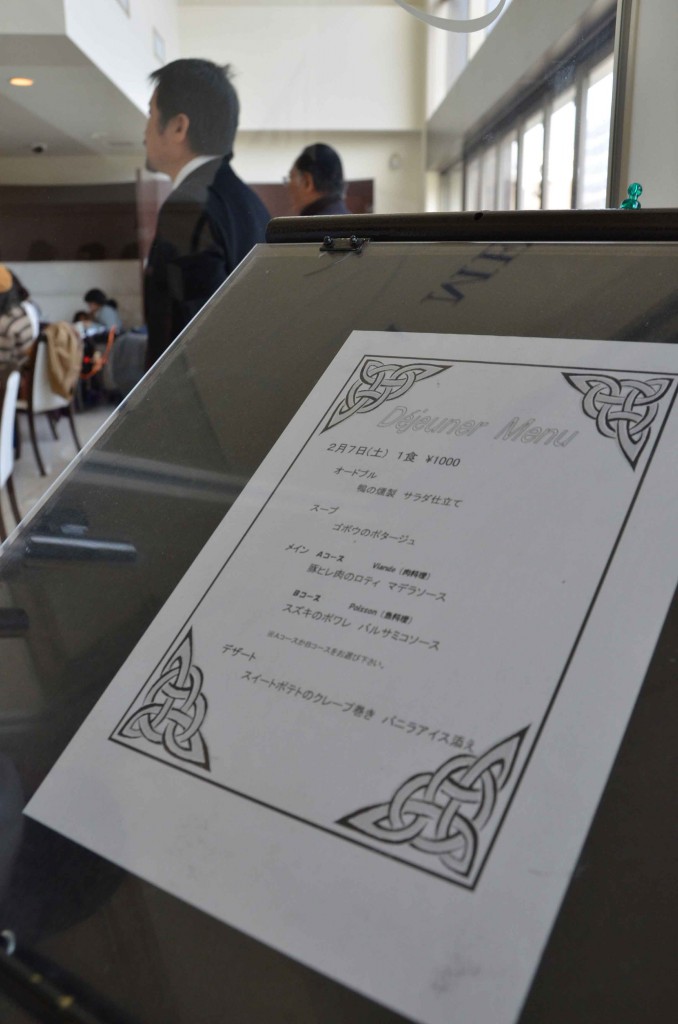 Déjeuner Menu
2月7日(土) 1食 ¥1000
オードブル
鴨の燻製 サラダ仕立て
スープ
ゴボウのポタージュ
メイン Aコース Viande (肉料理)
豚ヒレ肉のロティ マデラソース
Bコース Poisson (魚料理)
スズキのポワレ バルサミコソース
※AコースかBコースをお選び下さい。
デザート
スイートポテトのクレープ巻き バニラアイス添え